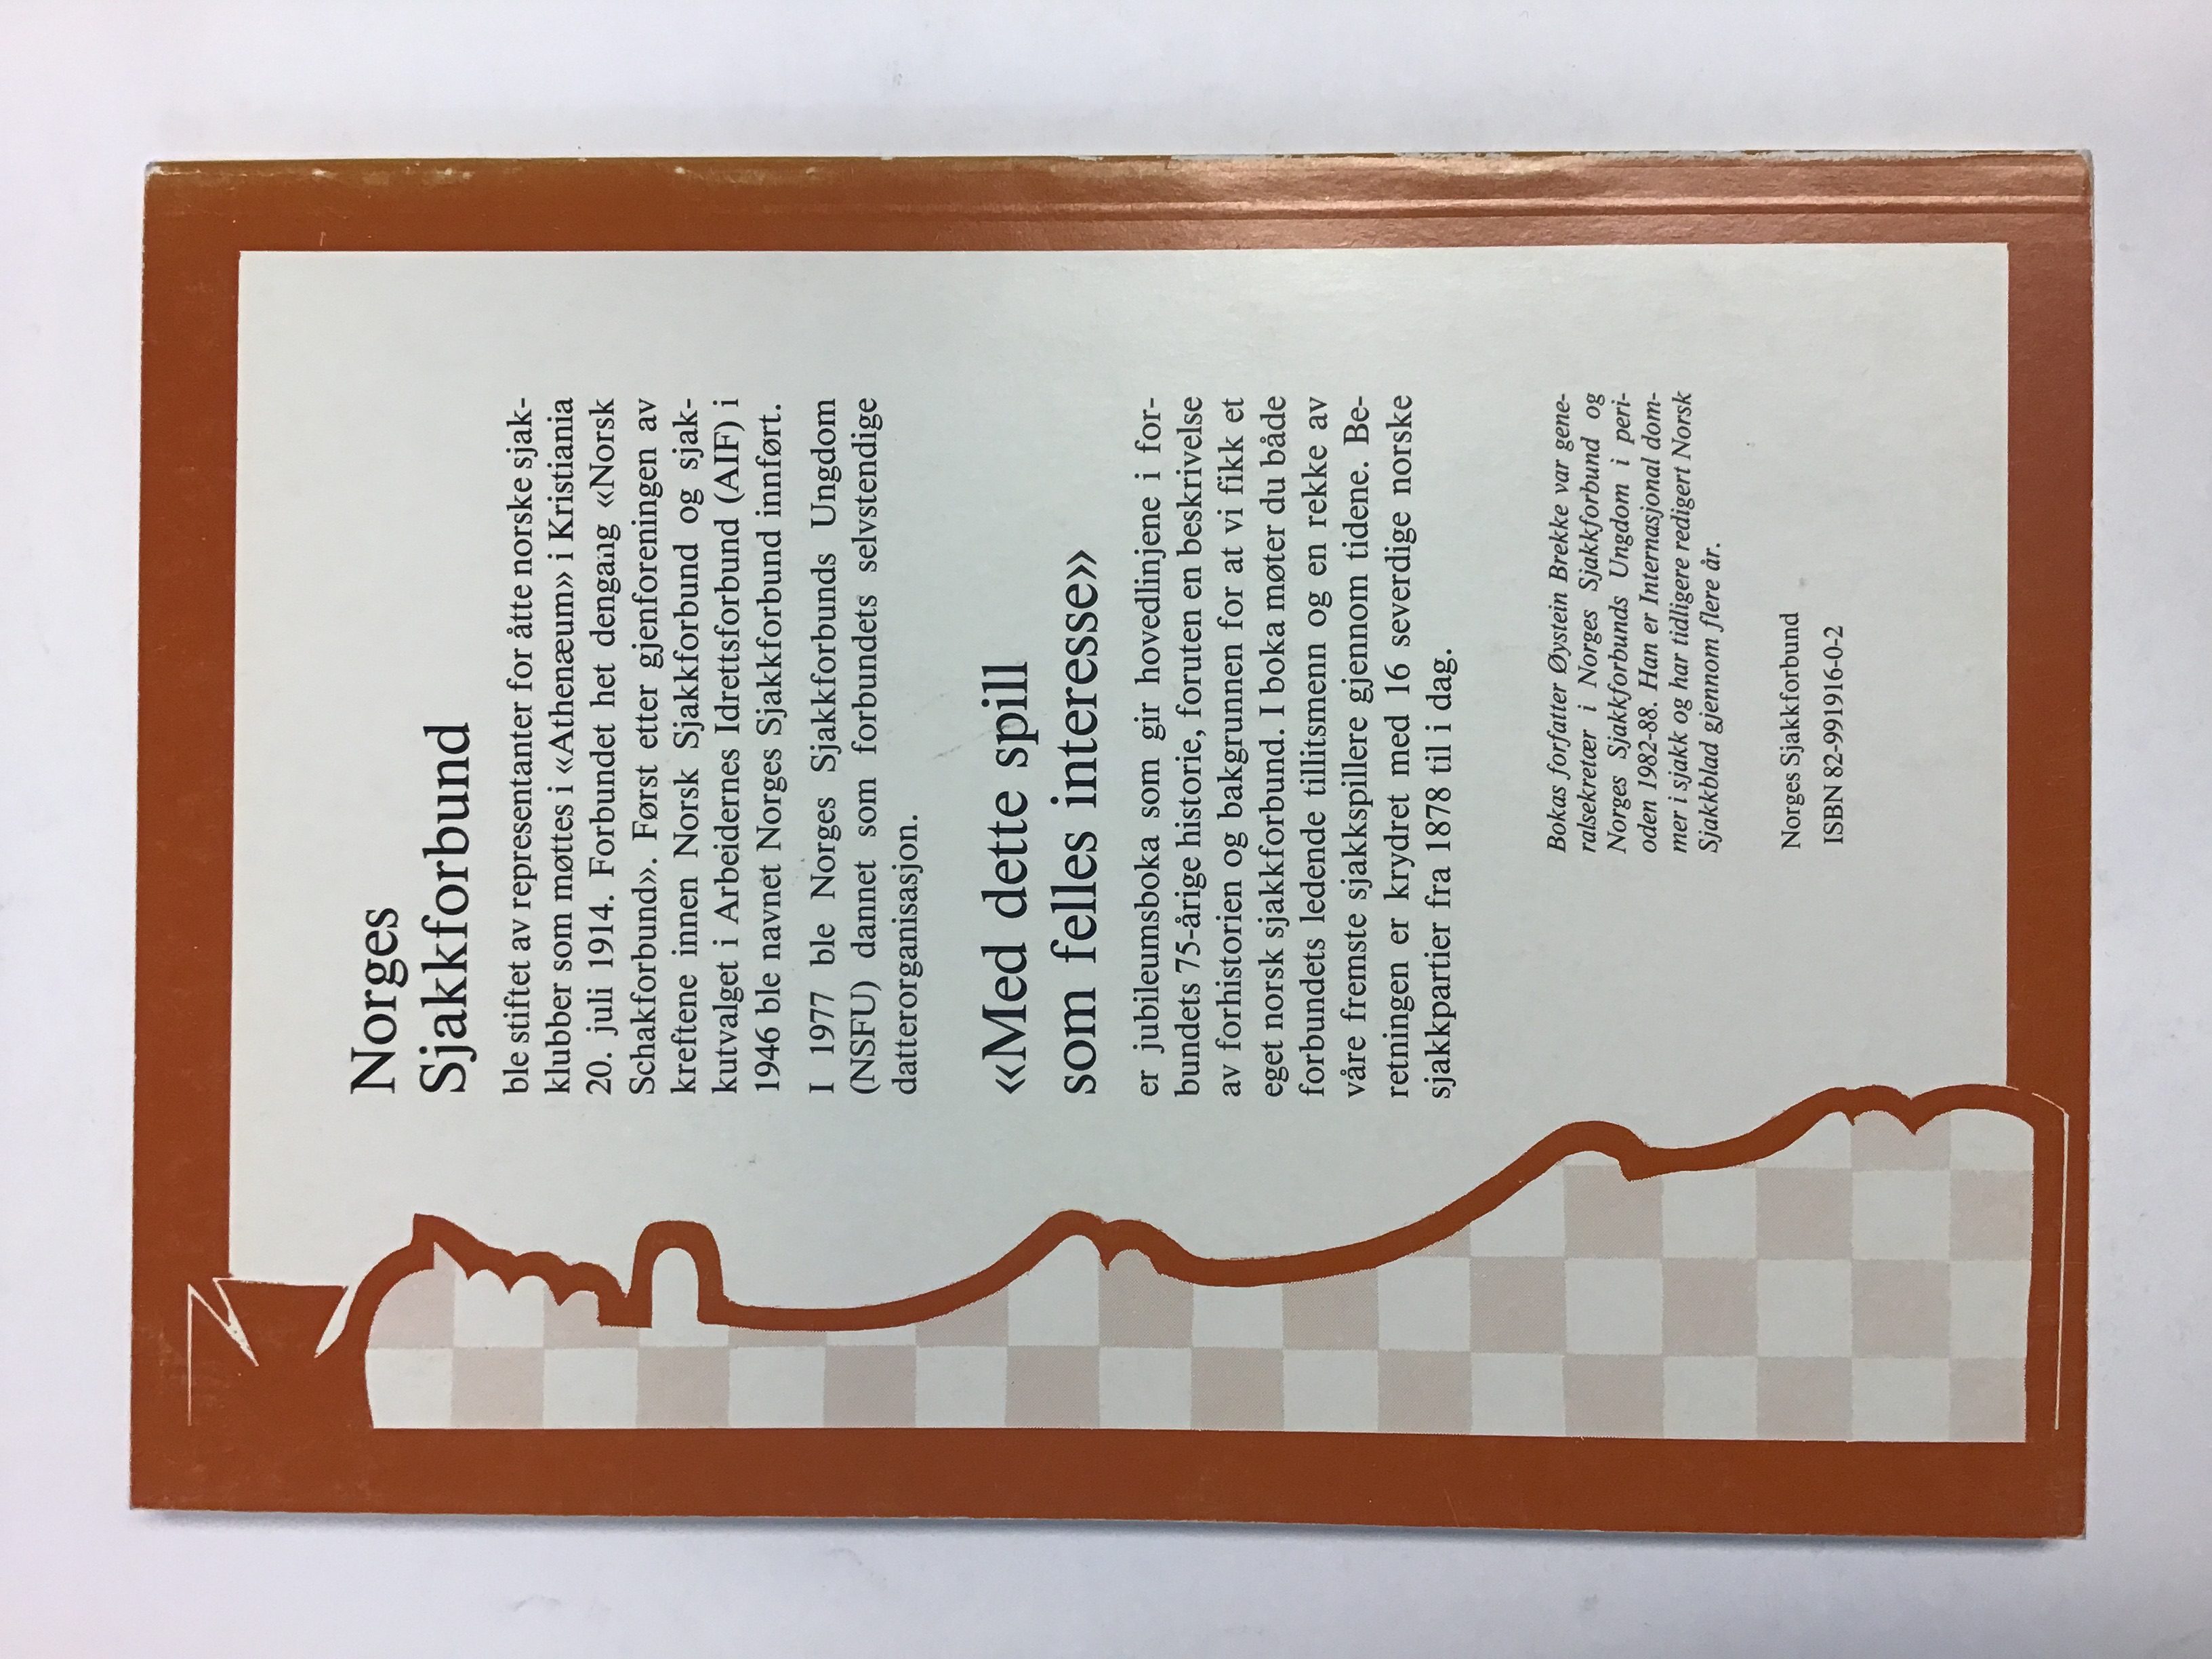 Norges
Sjakkforbund
ble stiftet av representanter for åtte norske sjak-
klubber som møttes i «Athenæum» i Kristiania
20. juli 1914. Forbundet het dengang «Norsk
Schakforbund». Først etter gjenforeningen av
kreftene innen Norsk Sjakkforbund og sjak-
kutvalget i Arbeidernes Idrettsforbund (AIF) i
1946 ble navnet Norges Sjakkforbund innført.
I 1977 ble Norges Sjakkforbunds Ungdom
(NSFU) dannet som forbundets selvstendige
datterorganisasjon.
«Med dette spill
som felles interesse»
er jubileumsboka som gir hovedlinjene i for-
bundets 75-årige historie, foruten en beskrivelse
av forhistorien og bakgrunnen for at vi fikk et
eget norsk sjakkforbund. I boka møter du både
forbundets ledende tillitsmenn og en rekke av
våre fremste sjakkspillere gjennom tidene. Be-
retningen er krydret med 16 severdige norske
sjakkpartier fra 1878 til i dag.
Bokas forfatter Øystein Brekke var gene-
ralsekretær i Norges Sjakkforbund og
Norges Sjakkforbunds Ungdom i peri-
oden 1982-88. Han er Internasjonal dom-
mer i sjakk og har tidligere redigert Norsk
Sjakkblad gjennom flere år.
Norges Sjakkforbund
ISBN 82-991916-0-2